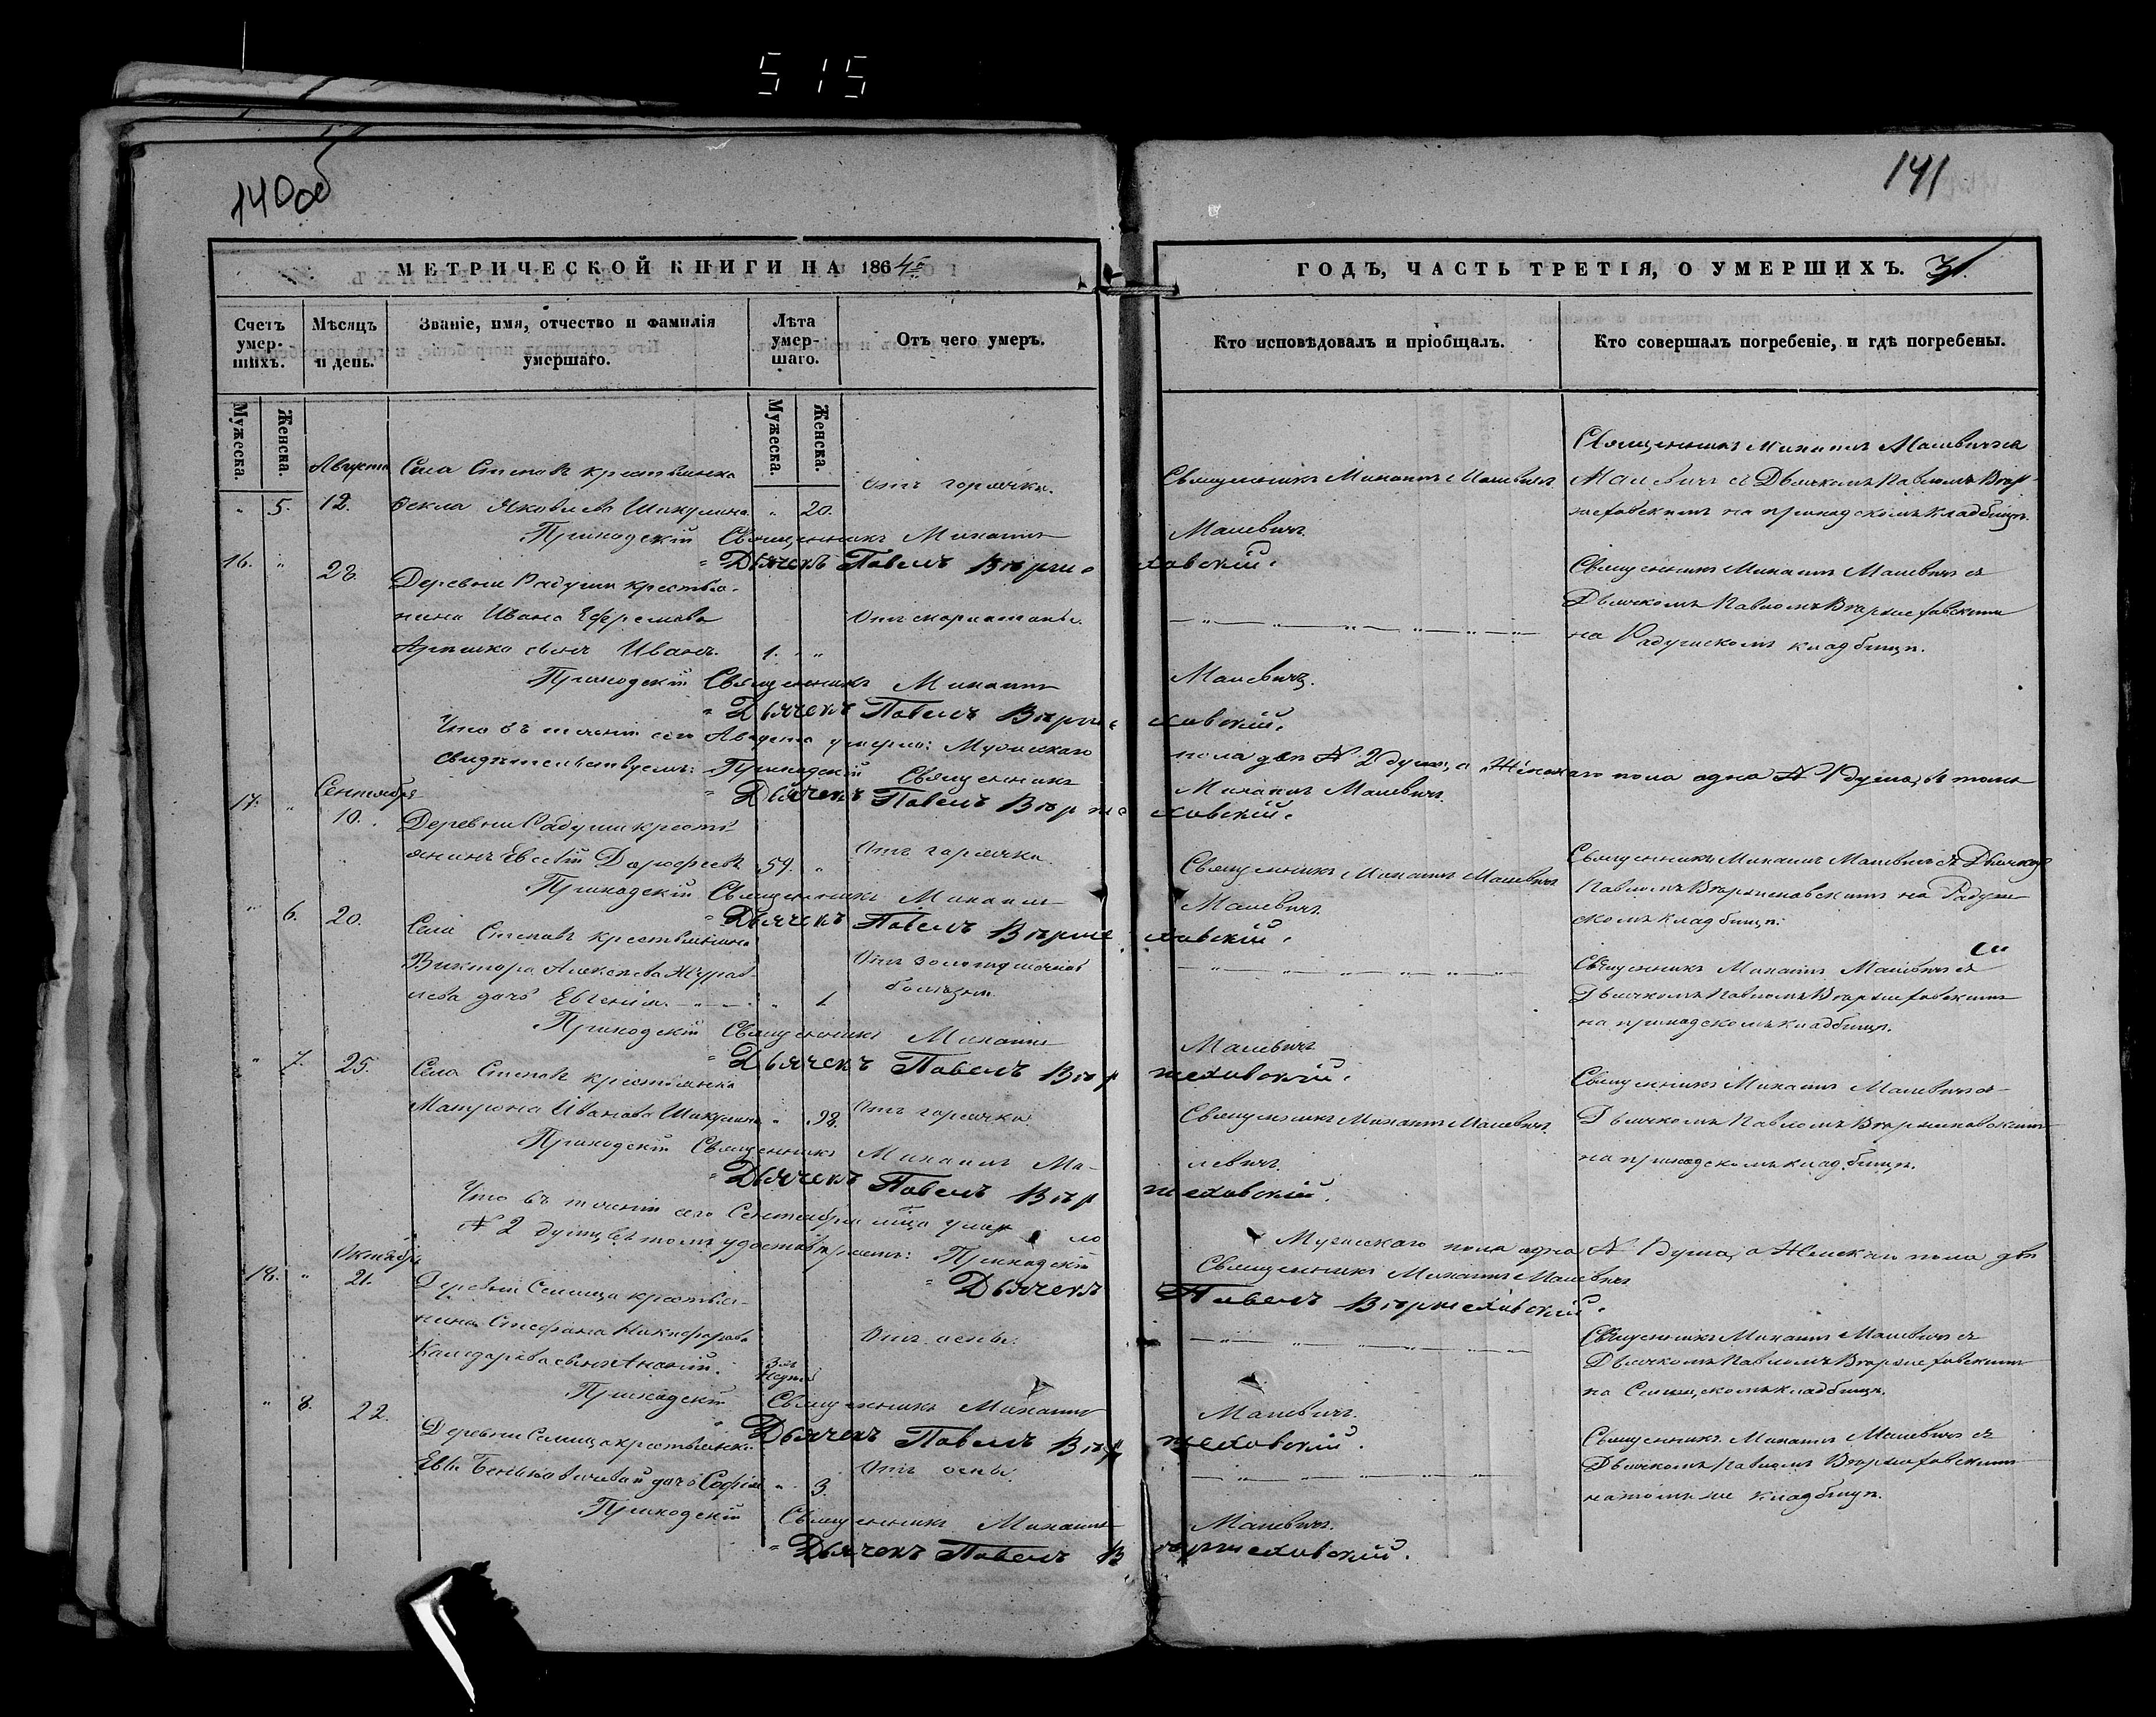 515
140об
141
МЕТРИЧЕСКОЙ КНИГИ НА 1864й
ГОДЪ, ЧАСТЬ ТРЕТІЯ, О УМЕРШИХЪ. 31.
Счетъ умер-шихъ.
Мѣсяцъ и день.
Званіе, имя, отчество и фамилія умершаго.
Лѣта умер-шаго.
Отъ чего умеръ.
Кто исповѣдовалъ и пріобщалъ.
Кто совершалъ погребеніе, и гдѣ погребены.
Мужеска. Женска.
Мужеска. Женска.
Августа
" 5. 12. Села Степовъ крестьянка
Ѳекла Яковлева " 20.
Отъ горячки.
Священникъ Михаилъ Малевичъ
Священникъ Михаилъ Малевичъ съ
Малевичъ съ Дьячкомъ Павломъ Вѣр-
жеховскимъ на приходскомъ кладбищѣ.
Приходскій Священникъ Михаилъ Малевичъ.
" Дьячекъ Павелъ Вѣржеховскій.
16. " 28. Деревни Радуши крестья-
нина Ивана Ефремова
сынъ Иванъ. 1. "
Священникъ Михаилъ Малевичъ съ
Дьячкомъ Павломъ Вѣржеховскимъ
на Радушскомъ кладбищѣ.
Приходскій Священникъ Михаилъ Малевичъ.
" Дьячекъ Павелъ Вѣржеховскій.
Что въ теченіи сего Августа умерло: Мужескаго пола двѣ № 2 души, а Женскаго пола одна № 1 душа, въ томъ
свидѣтельствуемъ: Приходскій Священникъ Михаилъ Малевичъ.
" Дьячекъ Павелъ Вѣржеховскій.
Сентября
17. " 10. Деревни Радуши кресть-
янинъ Евсевій Дорофеевъ 59. "
Отъ горячки.
Священникъ Михаилъ Малевичъ
Священникъ Михаилъ Малевичъ съ Дьячкомъ
Павломъ Вѣржеховскимъ на Радуш-
скомъ кладбищѣ.
Приходскій Священникъ Михаилъ Малевичъ.
" Дьячекъ Павелъ Вѣржеховскій.
" 6. 20. Села Степовъ крестьянина
Виктора Алексѣева Журав-
лева дочь Евгенія " 1.
Отъ золотушной
болѣзни.
Священникъ Михаилъ Малевичъ съ
Дьячкомъ Павломъ Вѣржеховскимъ
на приходскомъ кладбищѣ.
Приходскій Священникъ Михаилъ Малевичъ
" Дьячекъ Павелъ Вѣржеховскій.
" 7. 25. Села Степовъ крестьянка
Матрона Иванова "
Отъ горячки.
Священникъ Михаилъ Малевичъ.
Священникъ Михаилъ Малевичъ съ
Дьячкомъ Павломъ Вѣржеховскимъ
на приходскомъ кладбищѣ.
Приходскій Священникъ Михаилъ Малевичъ.
" Дьячекъ Павелъ Вѣржеховскій.
Что въ теченіи сего Сентября м-ца умерло Мужескаго пола одна № 1 душа, а Женскаго пола двѣ
№ 2 души, въ томъ удостовѣряемъ: Приходскій Священникъ Михаилъ Малевичъ
" Дьячекъ Павелъ Вѣржеховскій.
Октября
18. " 21. Деревни Селища крестья-
нина Стефана Никифорова
сынъ Ананій. 3хъ Недѣль
Отъ оспы.
Священникъ Михаилъ Малевичъ съ
Дьячкомъ Павломъ Вѣржеховскимъ
на Селищскомъ кладбищѣ.
Приходскій Священникъ Михаилъ Малевичъ.
" Дьячекъ Павелъ Вѣржеховскій.
" 8. 22. Деревни Селища крестьянки
Евы дочь Софія " 3.
Отъ оспы.
Священникъ Михаилъ Малевичъ съ
Дьячкомъ Павломъ Вѣржеховскимъ
на томъ же кладбищѣ.
Приходскій Священникъ Михаилъ Малевичъ.
" Дьячекъ Павелъ Вѣржеховскій.